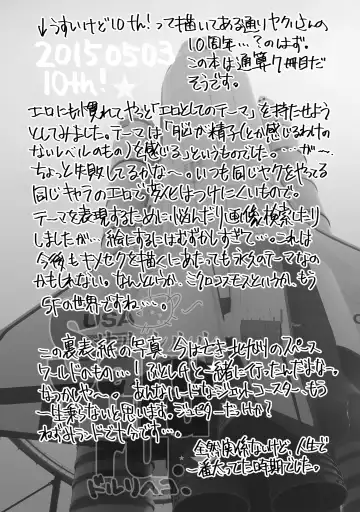 ↓うすいけど10th!って描いてある通りヤクいさんの
10周年…?のはず。
この本は通算7冊目だ
そうです。
20150503
10th!★
エロにも慣れてやっと「エロとしてのテーマ」を持たせよう
としてみました。テーマは「脳が精子(とか感じるわけの
ないレベルのもの)を感じる」というものでした。…が〜、
ちょっと失敗してるかな〜。いつも同じヤクをやってる
同じキャラのエロで変化はつけにくいもので。
テーマを表現するために悩んだり画像検索したり
しましたが…絵にするにはむずかしすぎて…。これは
今後もキメセクを描くにあたっても永久のテーマなの
かもしれない。なんというか、ミクロコスモスというか、もう
SFの世界ですね…。
USA
この裏表紙の写真、今はなき北九州のスペース
ワールドのもの…!ひとしれと一緒に行ったんだよな〜。
なつかしや〜。あんなハードなジェットコースター、もう
一生乗らないと思います。ジュピターだっけか?
ねずみランドで十分です…。
全然関係ないけど、人生で
一番太ってた時期でした。
ドルリヘコ.